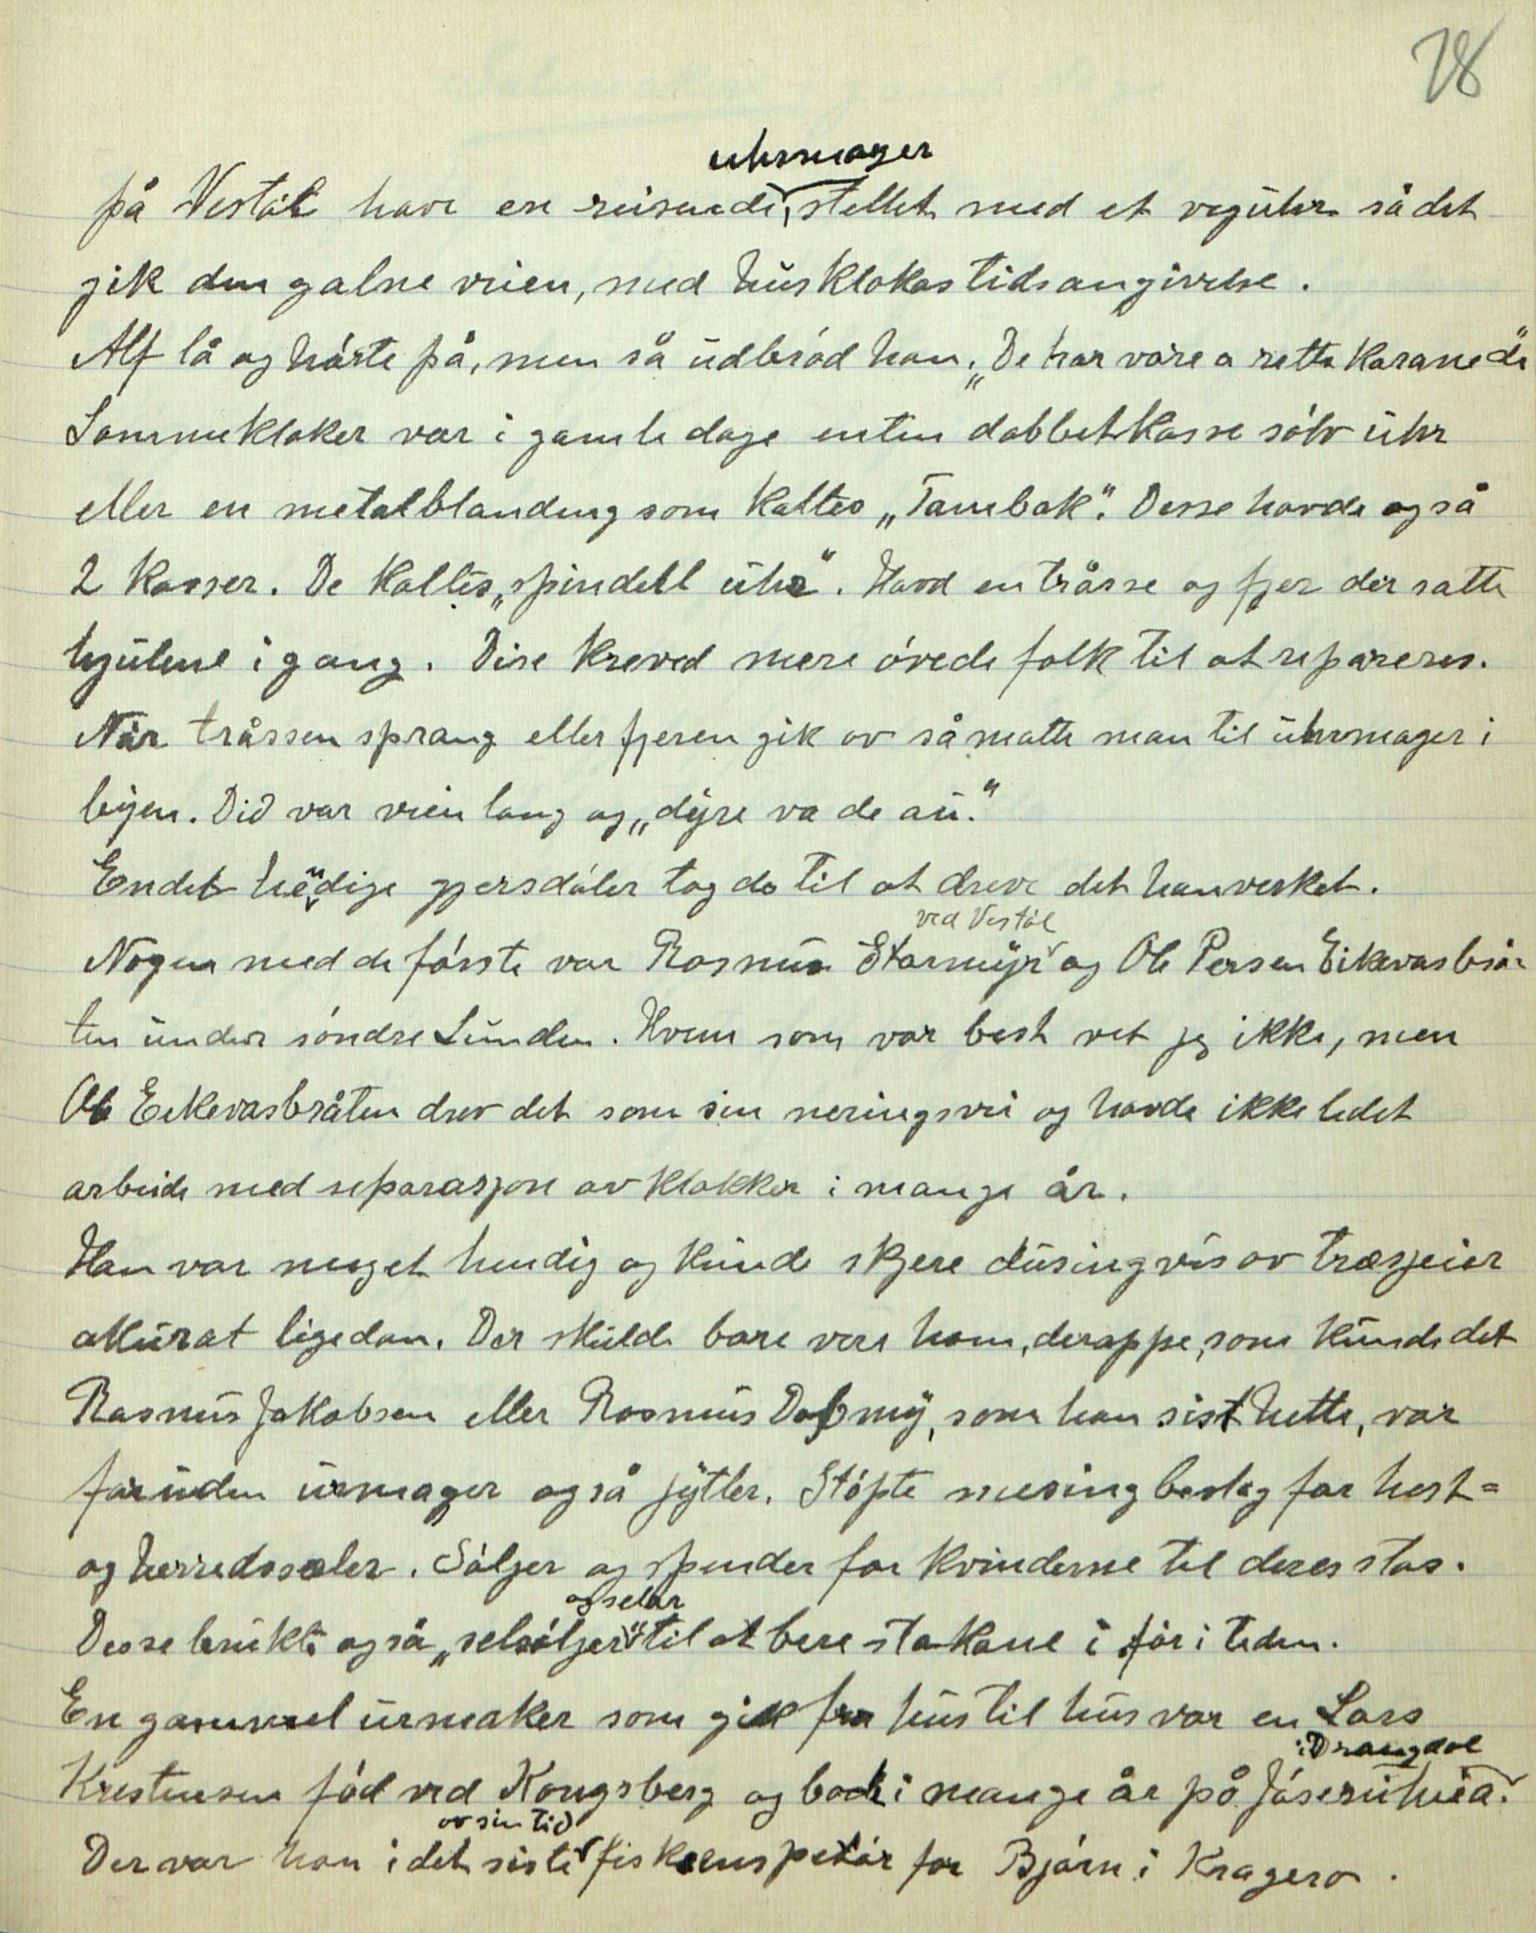 28
på Vestøl have en reisende uhrmager stellet med et veguhr så det
gik den galne veien, med husklokas tidsangivelse.
Alf lå og hørte på, men så udbrød han. „De har vore a rette karane de"
Lommekloker var i gamle dage enten dobbeltkasse sølv uhr
eller en metalblanding som kaltes „Tambak". Desse havde også
2 kasser. De kaltes „spindell uhr". Havd en tråsse og fjer der satte
hjulene i gang. Dise kreved mere øvede folk til at repareres.
Når tråssen sprang eller fjeren gik av så måtte man til uhrmager i
byen. Did var veien lang og „dyre va de au."
Endel hendige gjersdøler tog da til at dreve det hanverket.
Nogen med de første var Rasmus Stormyr ved Vestøl og Ole Persen Eikevasbrå-
ten under søndre Lunden. Hvem som var best vet jeg ikke, men
Ole Eekevasbråten drev det som sin neringsvei og havde ikke ledet
arbeide med reparasjon av klokker i mange år.
Han var meget hendig og kunde skjere dusingvis av træsjeier
akurat ligedan. Der skulde bare vere ham, deroppe, som kunde det
Rasmus Jakobsen eller Rasmus Dalmy, som han sist hette, var
foruden urmager også jytler. Støpte mesingbeslag for hest=
og herredssæler. Søljer og spender for kvinderne til deres stas.
Desse brukte også „selsøljer" og selar til at bere stakane i før i tiden.
En gammel urmaker som gik fra hus til hus var en Lars
Kristensen fød ved Kongsberg og bode i mange år på Jøseruheia i Drangdal.
Der var han i det siste av sin tid fiskeenspektør for Bjørn i Kragerø.